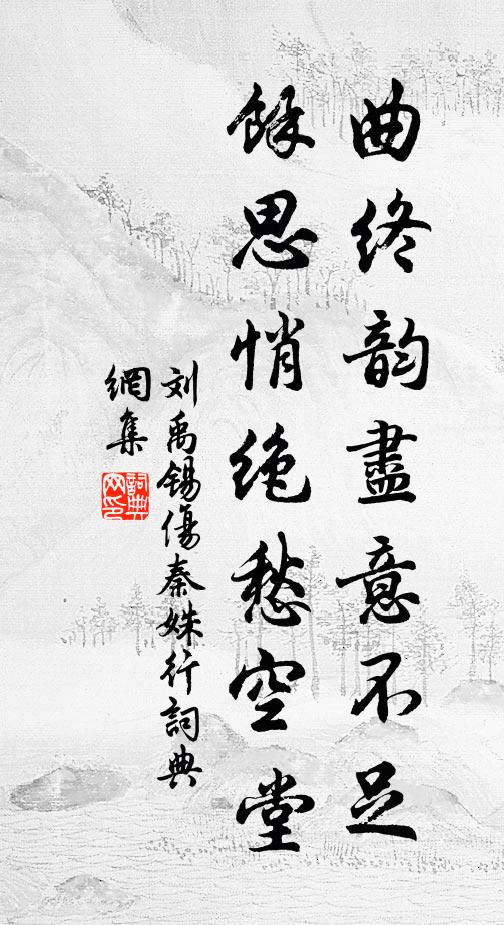 曲终韵盡意不足
餘思悄绝愁空堂
刘禹锡傷秦姝行詞典
網集
詞典网印